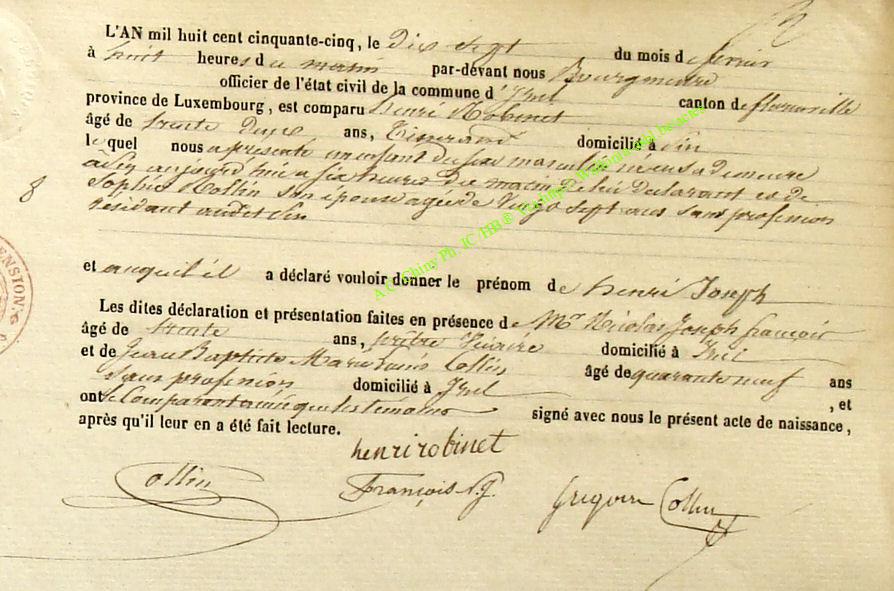 L'AN mil huit cent cinquante-cinq, le Dix sept du mois de février
à huit heures du matin par-dévant nous Bourgmestre
officier de l'état civil de la commune d'Izel canton de florenville
province de Luxembourg, est comparu henri Robinet
âgé de trente ans, Tisserand domicilié à
lequel nous a présenté un enfant du sexe masculin
aujourd'hui a six heures du matin de lui déclarant et de
Sophie Collin son épouse agée de vingt sept ans sans profession
résidant audit
8
et auquel il a déclaré vouloir donner le prénom de henri Joseph
Les dites déclaration et présentation faites en présence de Mr Nicolas Joseph françois
âgé de trente ans, prêtre vicaire domicilié à Izel
et de Jean Baptiste Collin âgé de quarante neuf ans
sans profession domicilié à Izel, et
ont le Comparant ainsi que les témoins signé avec nous le présent acte de naissance,
après qu'il leur en a été fait lecture.
henri robinet
Collin François N.J. Gregoire Collin